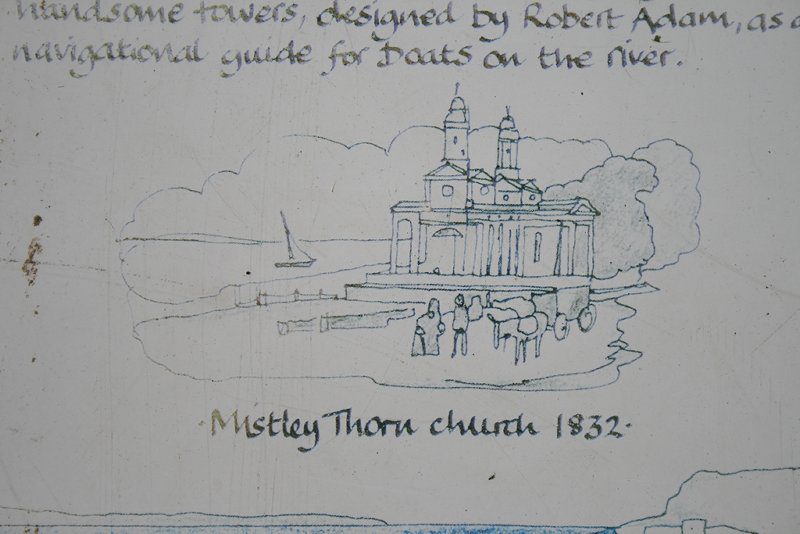 handsome towers, designed by Robert Adam, as a
navigational guide for boats on the river.
·Mistley Thorn church 1832·